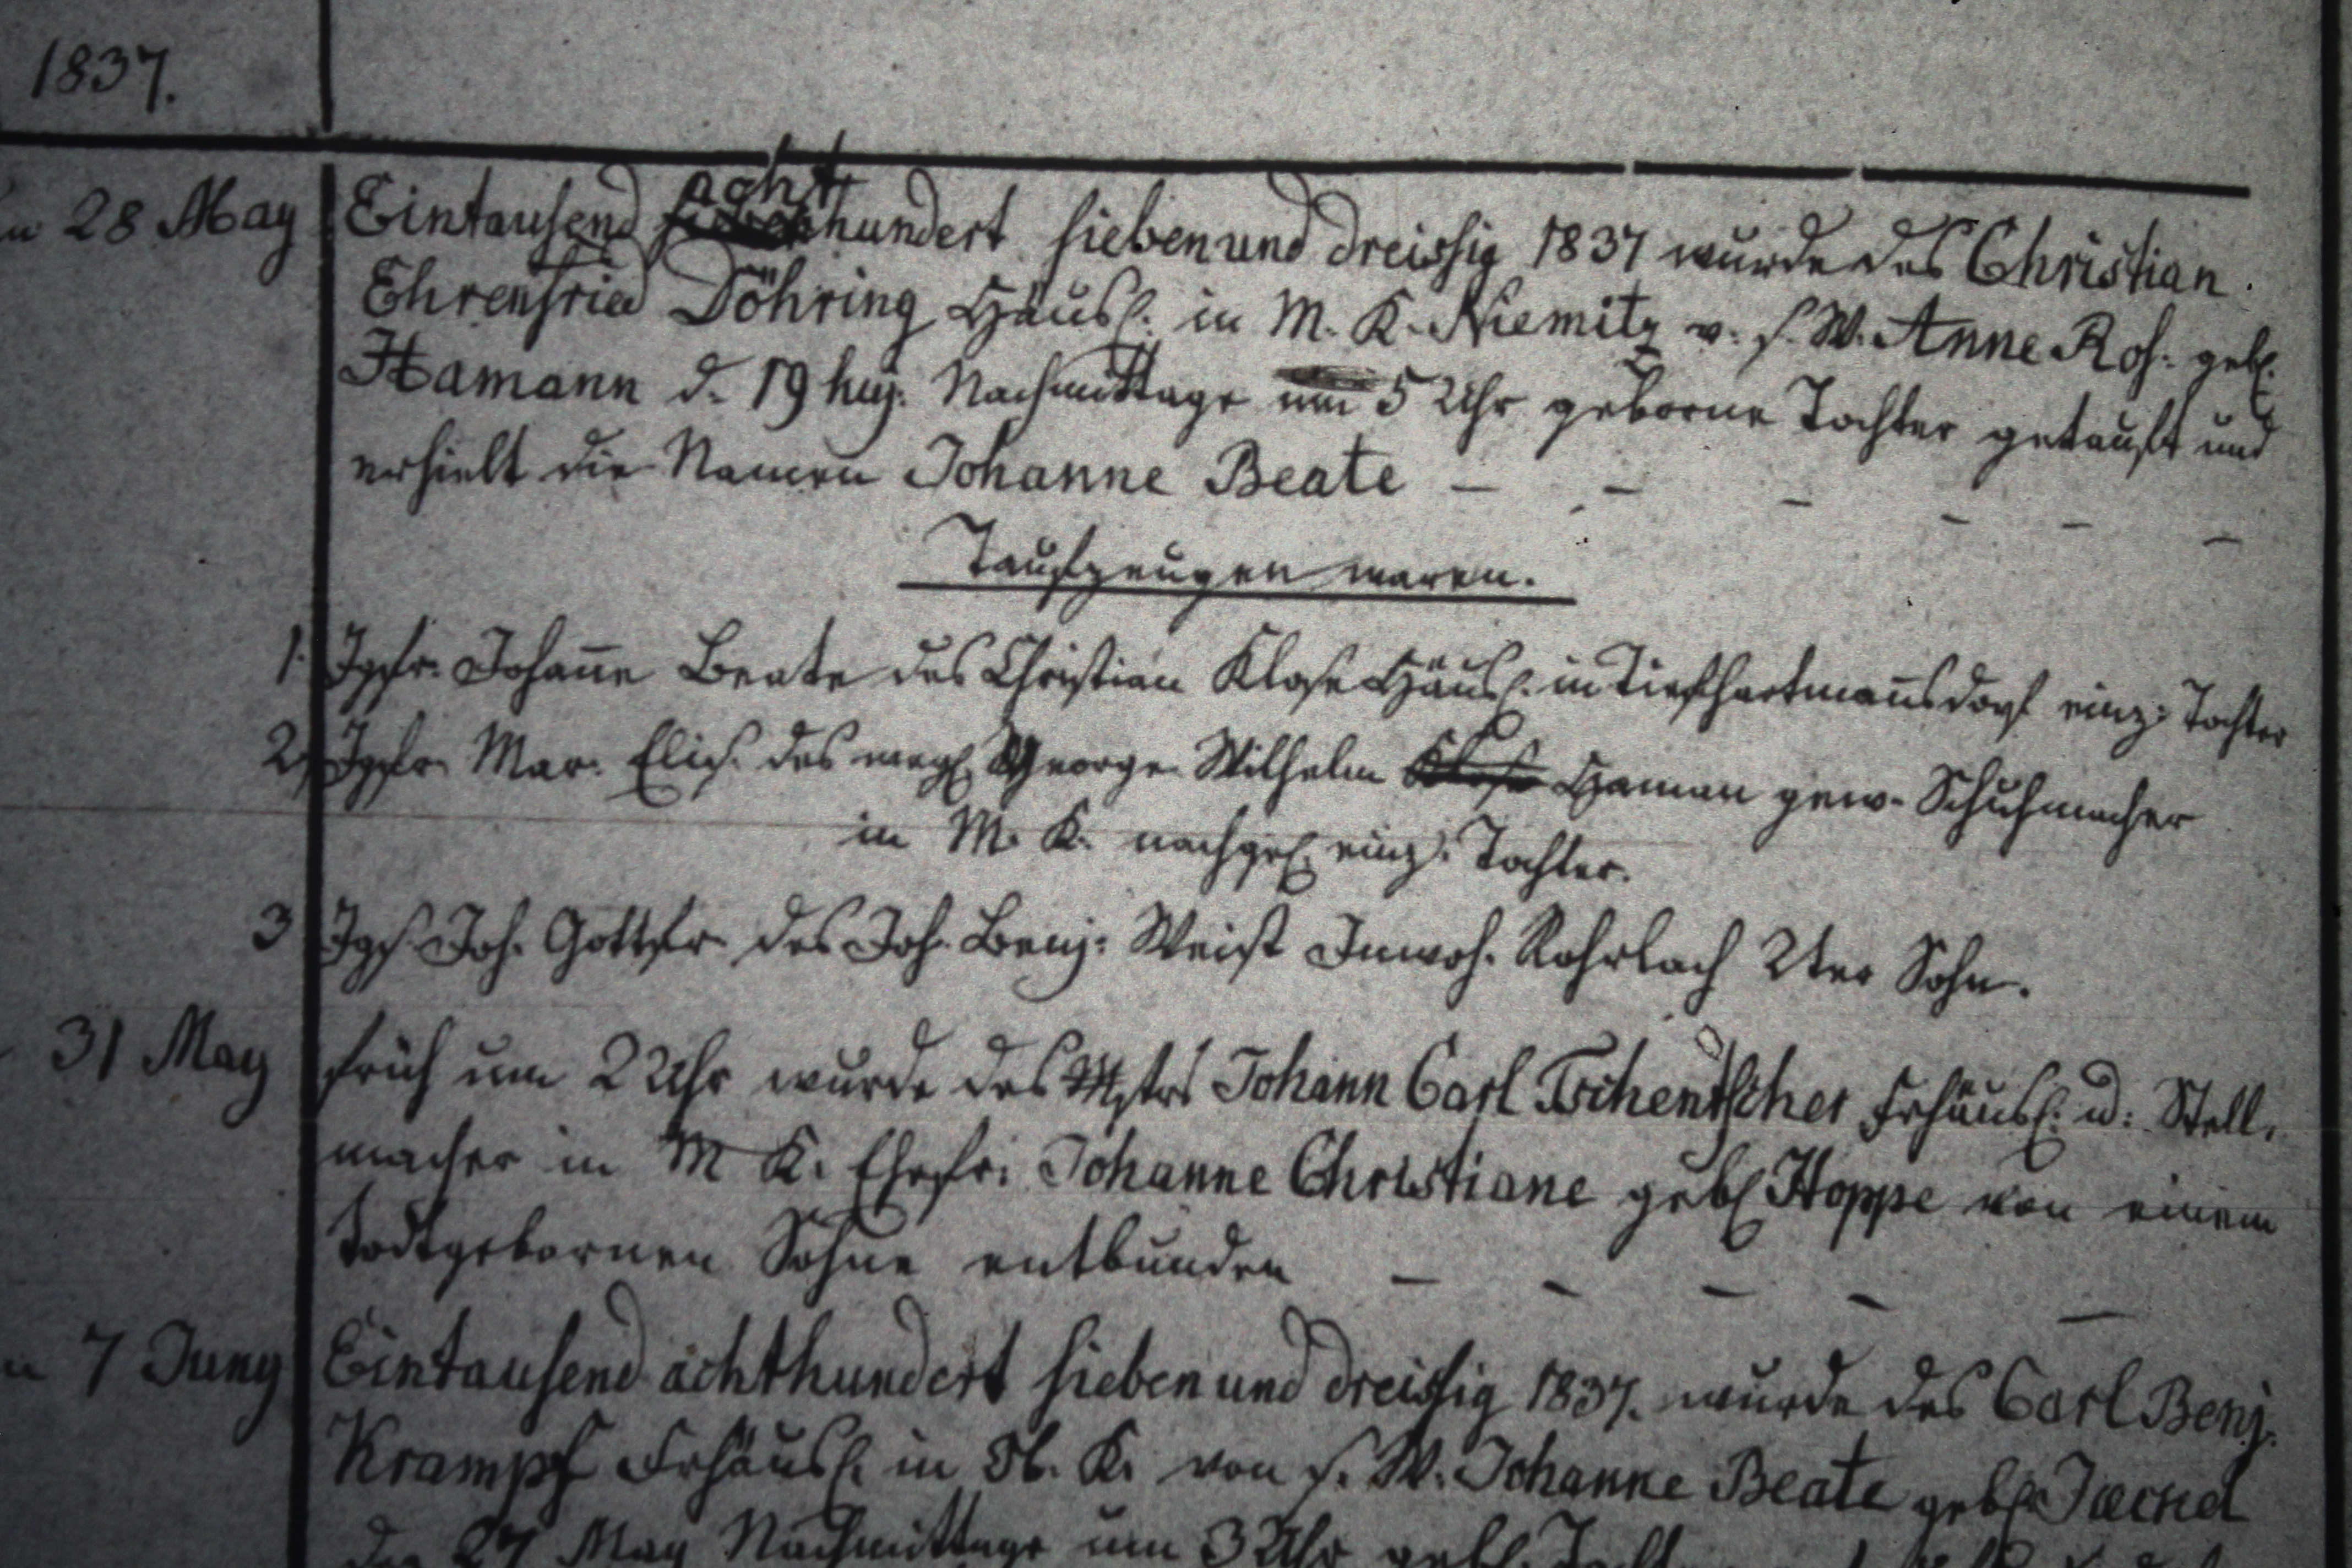 1837.
28 May Eintausend acht hundert siebenund dreissig 1837 wurde des Christian
Ehrenfried Döhring Häusl. in M. K. Niemitz v. s. W. Anne Ros. geb.
Hamann d. 19 huj. Nachmittage um 5 Uhr geborne Tochter getauft und
erhielt die Namen Johanne Beate — — — — — —
Taufzeugen waren.
1. Jgfr. Johan̄e Beate des Christian Klose Häusl. in Tiefhartman̄sdorf einz. Tochter
2, Jgfr. Mar. Elis. des George Wilhelm Haman gew. Schuhmacher
in M. K. nachgel. einz. Tochter.
3 Jgs. Joh. Gottfr. des Joh. Benj. Weist Inwoh. Rohrlach 2ter Sohn.
31 May früh um 2 Uhr wurde des Mstrs Johann Carl Tschentscher Frhäusl. u. Stell-
macher in M K. Ehefr. Johanne Christiane geb. Hoppe von einem
todtgebornen Sohne entbunden — — — — —
7 Juny Eintausend achthundert siebenund dreissig 1837. wurde des Carl Benj.
Krampf Frhäusl. in K. von s. W. Johanne Beate geb.
den 27 May Nachmittage um 3 Uhr geb.